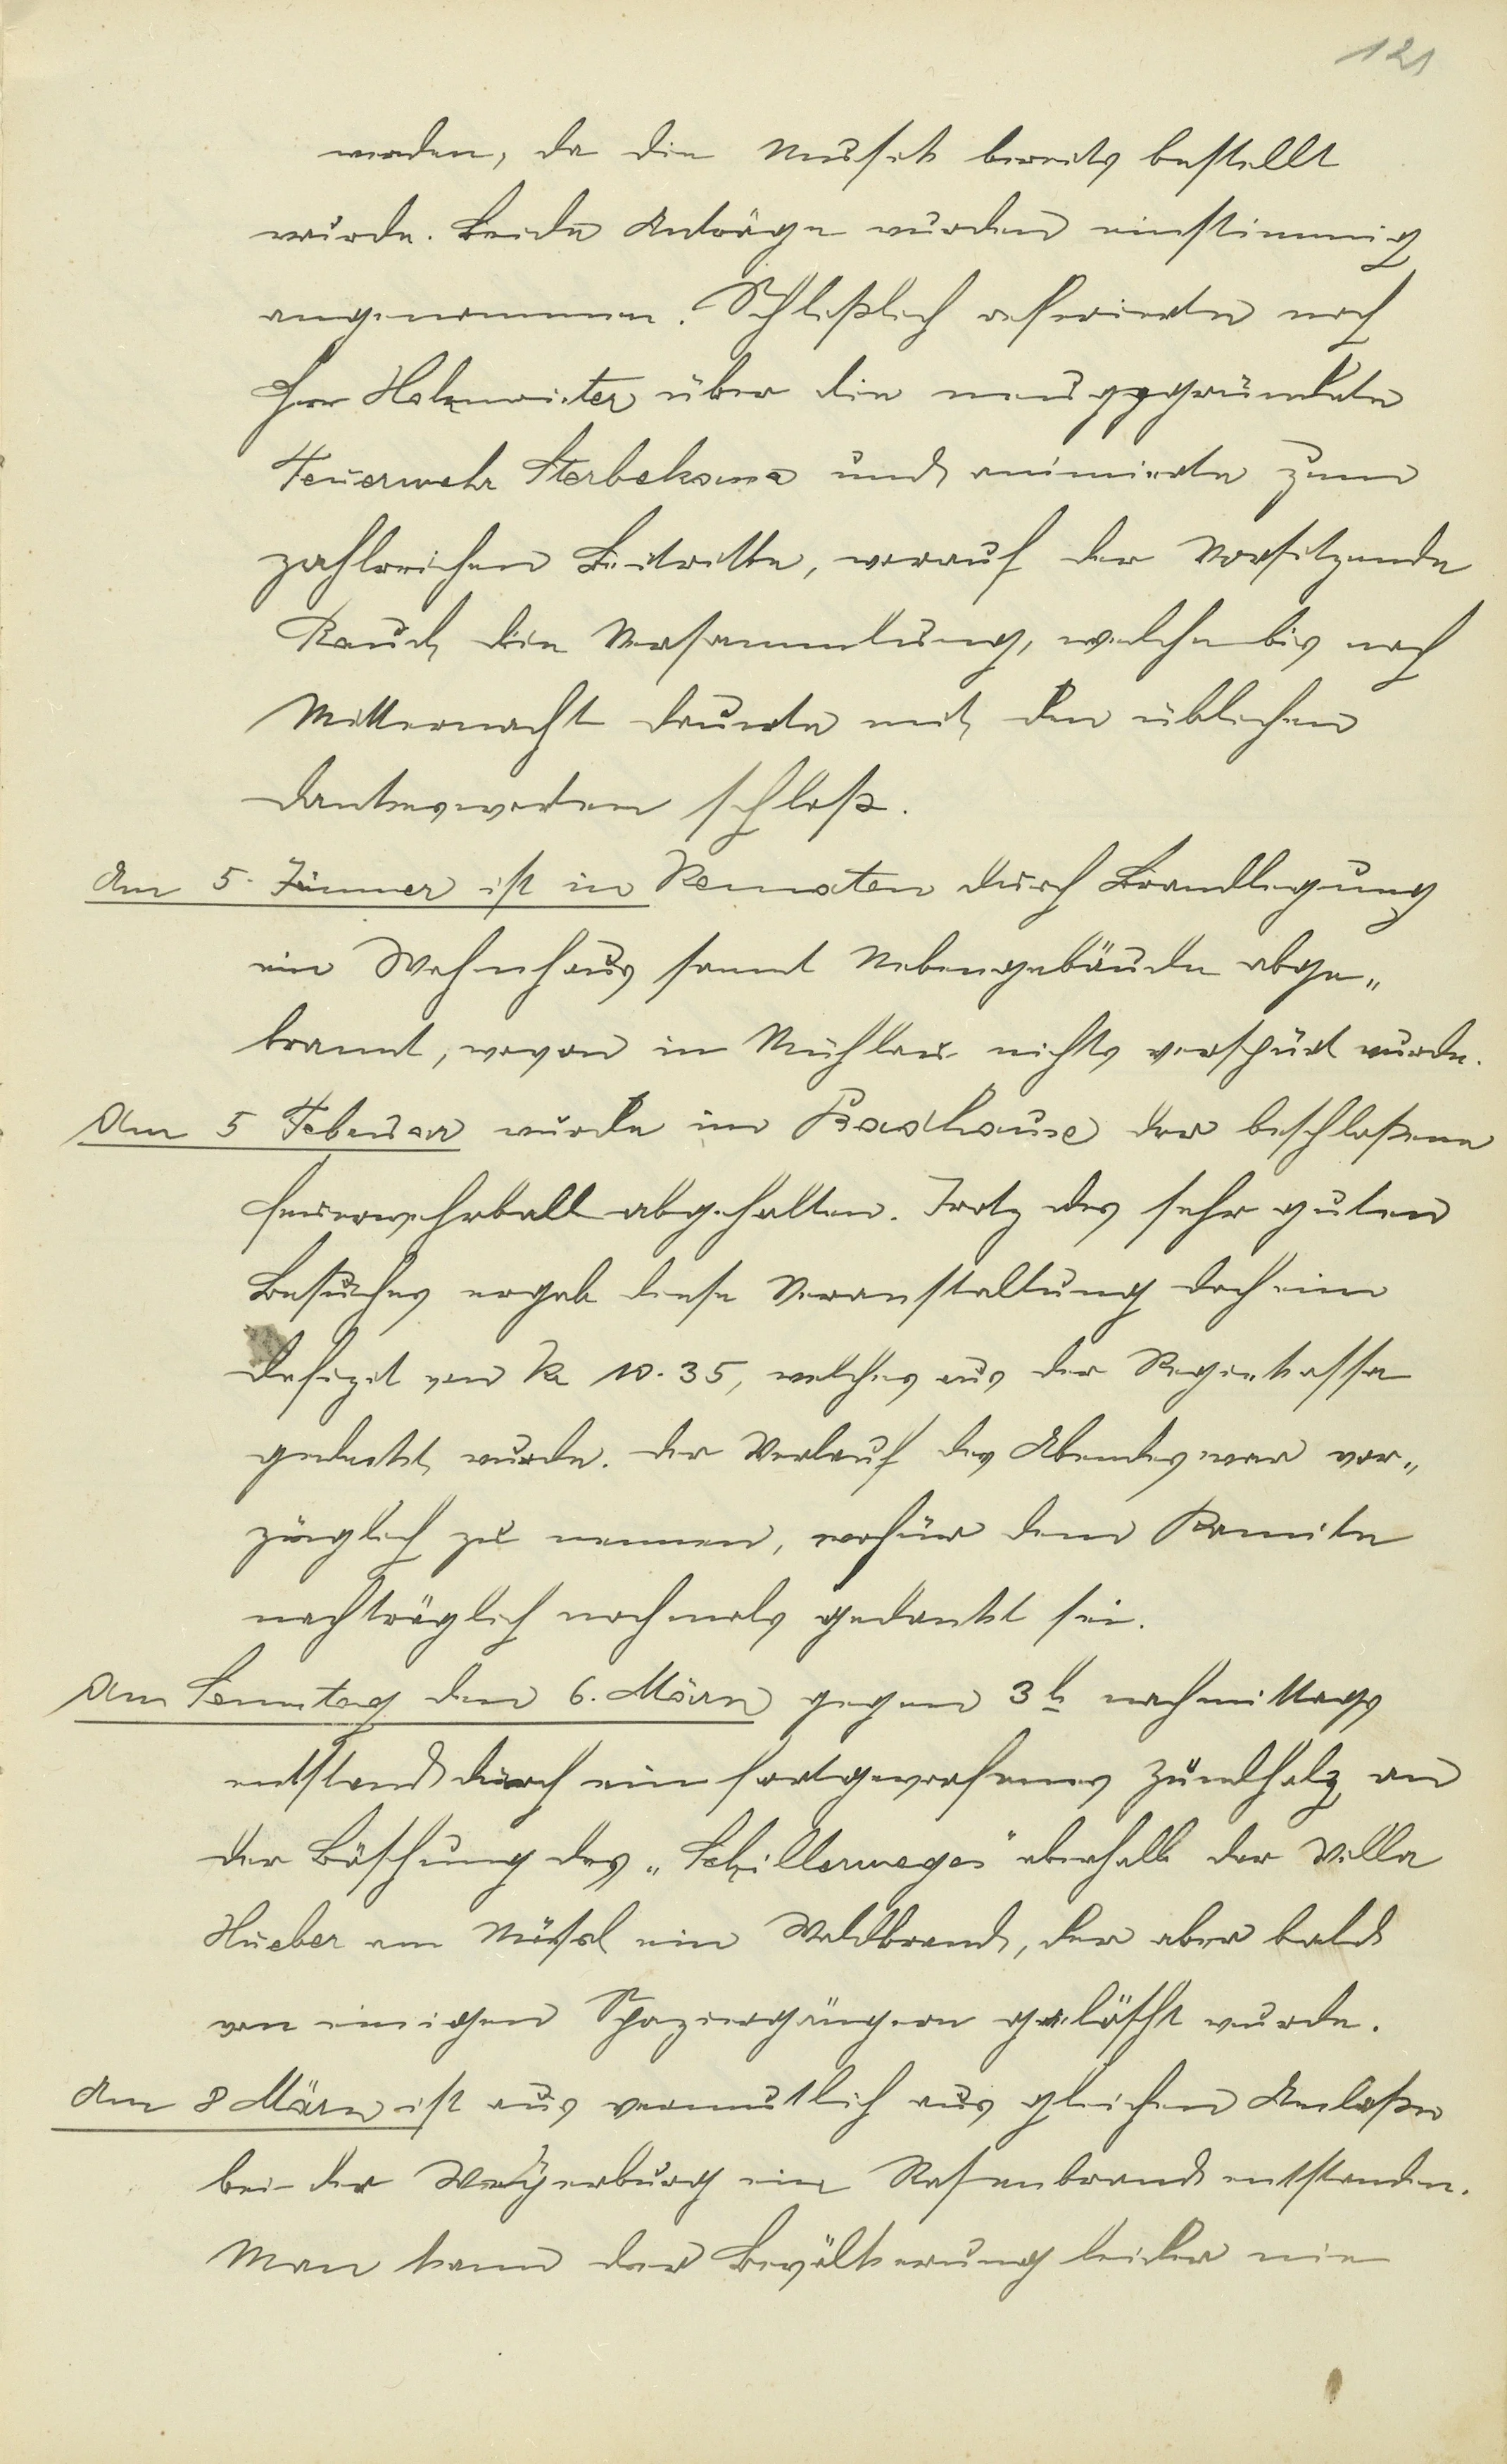 121
werden, da die Musik bereits bestellt
wurde. Beide Anträge wurden einstimmig
angenommen. Schließlich referierte noch
Herr Holzmeister über die neugegründete
Feuerwehr Sterbekassa und animierte zum
zahlreichen Beitritte, worauf der Vorsitzende
Rauch die Versammlung, welche bis nach
Mitternacht dauerte mit den üblichen
Dankesworten schloß.
Am 5. Jänner ist in Kematen durch Brandlegung
ein Wohnhaus samt Nebengebäude abge„
brannt, wovon in Mühlau nichts verspürt wurde.
Am 5 Februar wurde im Badhause der beschloßene
Feuerwehrball abgehalten. Trotz des sehr guten
Besuches ergab diese Veranstaltung doch ein
Defizit von K 10.35, welches aus der Regiekassa
gedeckt wurde. Der Verlauf des Abendes war vor„
züglich zu nennen, wofür dem Komite
nachträglich nochmals gedankt sei.
Am Sonntag den 6. März gegen 3 h nachmittags
entstand durch ein fortgeworfenes Zündholz an
der Böschung des „Schillerweges" oberhalb der Villa
Hueber am ein Waldbrand, der aber bald
von einigen Spaziergängern gelöscht wurde.
Am 8 März ist aus vermutlich aus gleichen Anlaße
bei der Weyerburg ein Rasenbrand entstanden.
Man kann der Bevölkerung leider nie